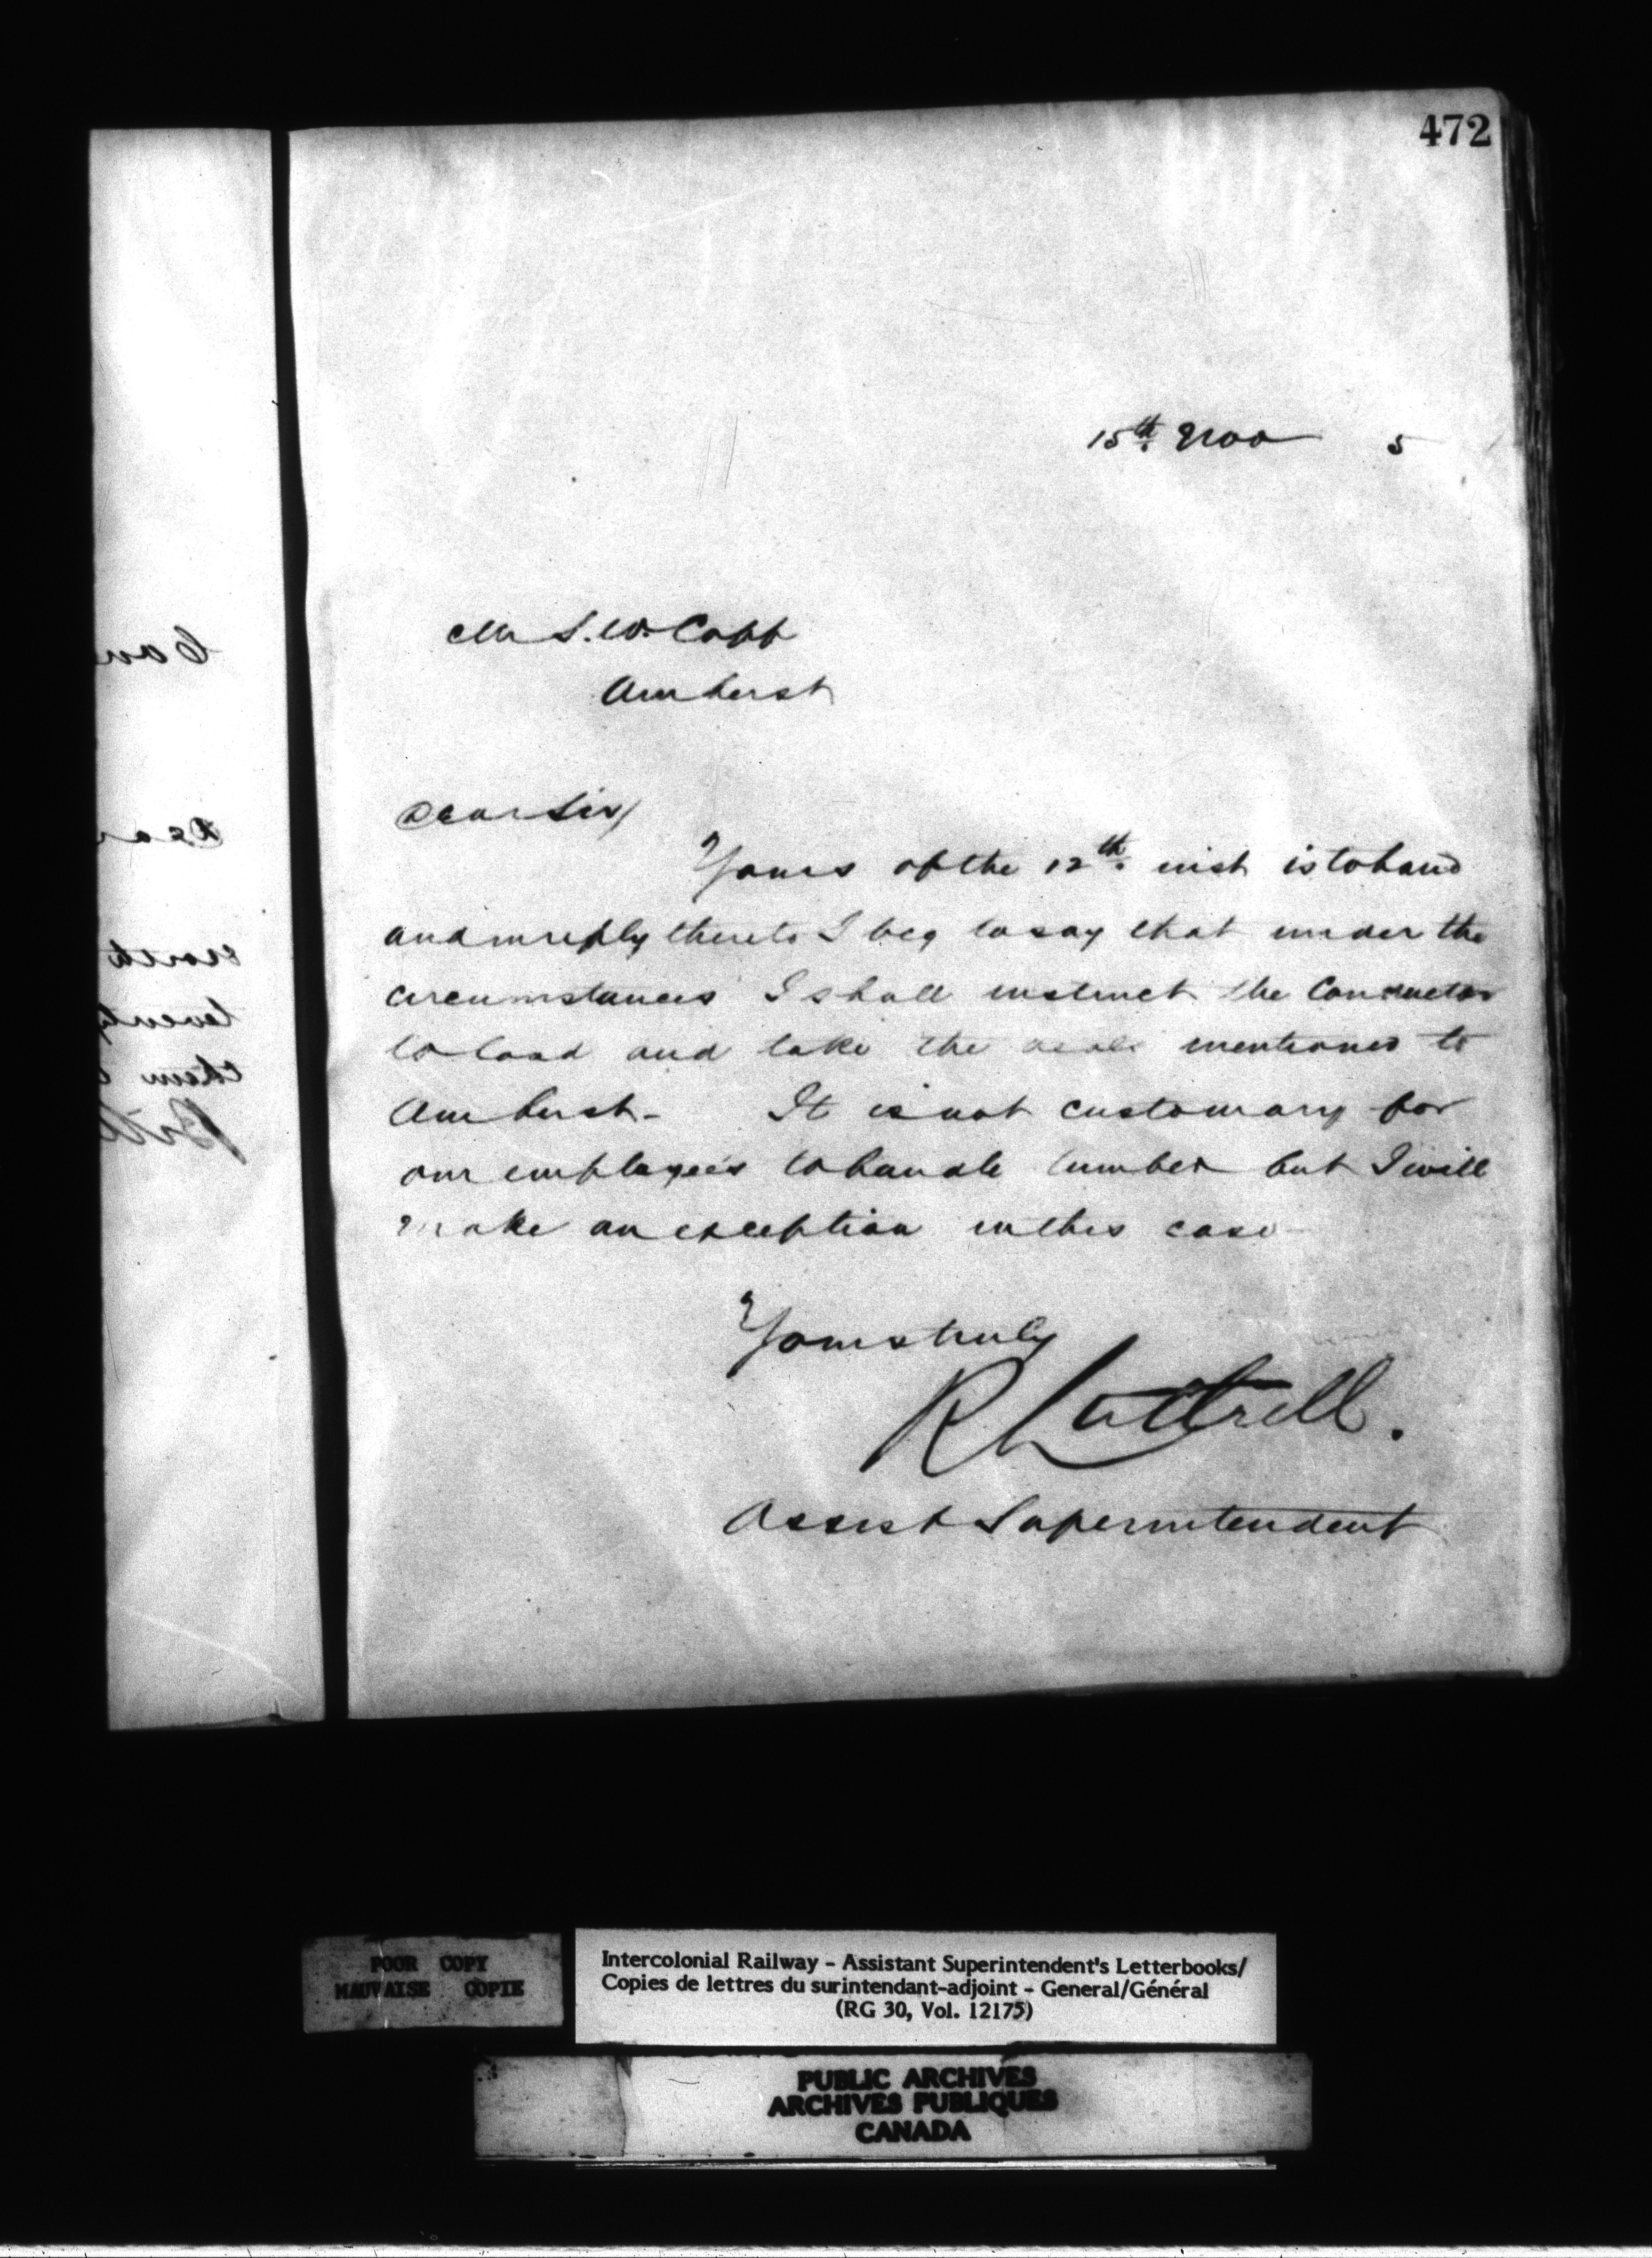 472
15th. Nov 5
Mr S. W. Copp
Amherst
Dear Sir/
Yours of the 12th. inst is to hand
and in reply thereto I beg to say that under the
circumstances I shall instruct the Conductor
to load and take the mentioned to
Amherst- It is not customary for
our employees to handle lumber but I will
make an exception in this case-
Yours truly
R Luttrell.
Assist Superintendent
POOR COPY
MAUVAISE COPIE
Intercolonial Railway - Assistant Superintendent's Letterbooks/
Copies de lettres du surintendant-adjoint - General/Général
(RG 30, Vol. 12175)
PUBLIC ARCHIVES
ARCHIVES PUBLIQUES
CANADA